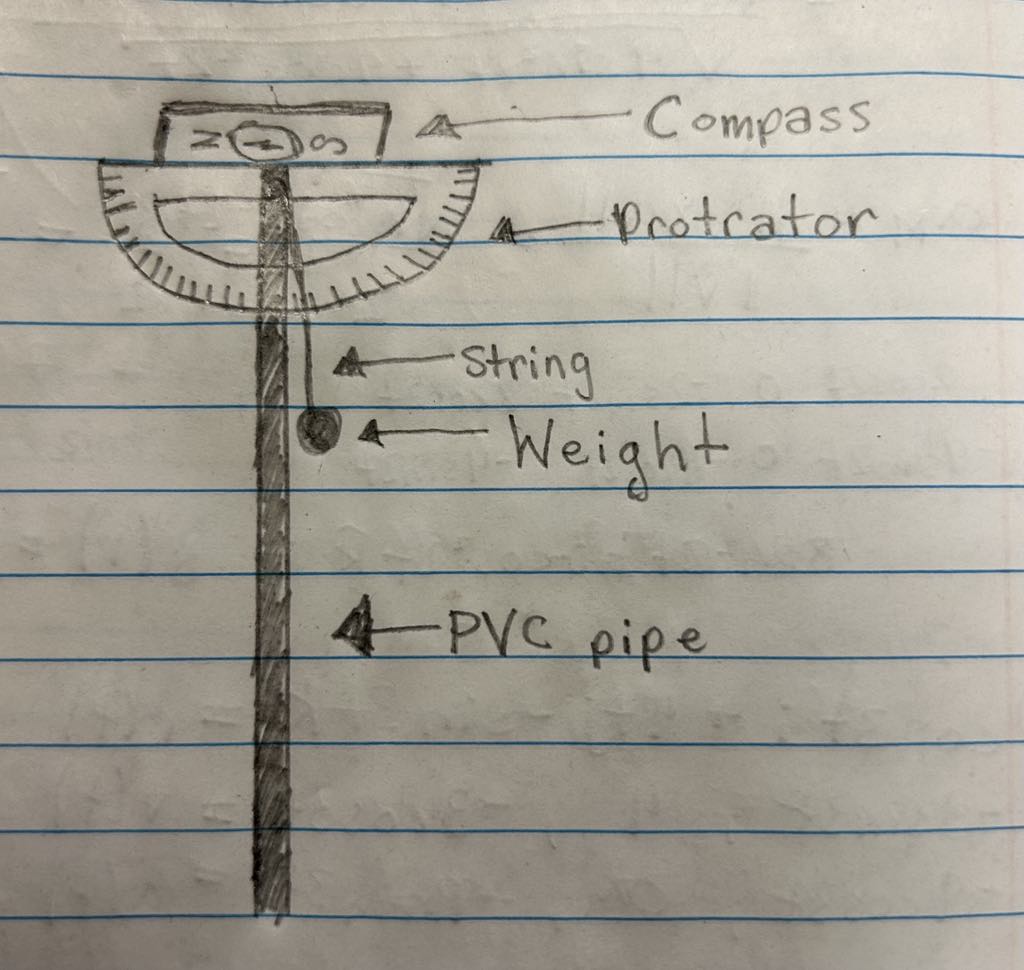 N S
Compass
Protrator
String
Weight
PVC pipe